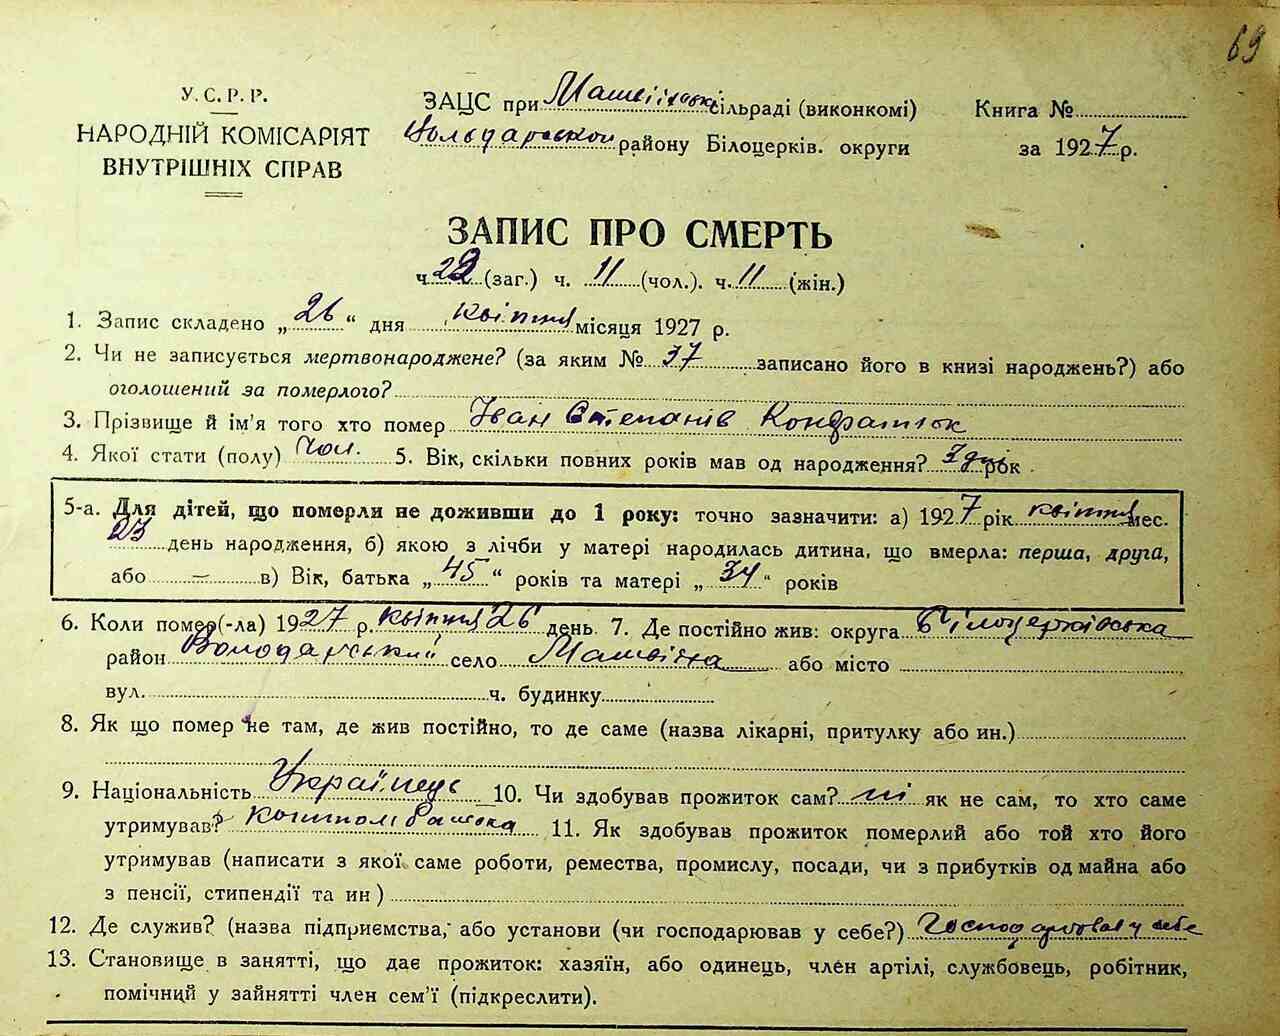 69
У.С.Р.Р.
НАРОДНІЙ КОМІСАРІЯТ
ВНУТРІШНІХ СПРАВ
ЗАЦС при Матвіївські сільраді (виконкомі)
Володарської району Білоцерків. округи
Книга №
за 1927 р.
ЗАПИС ПРО СМЕРТЬ
ч. 22 (заг.) ч. 11 (чол.). ч. 11 (жін.)
1. Запис складено „ 26 “ дня квітня місяця 1927 р.
2. Чи не записується мертвонароджене? (за яким № 37 записано його в книзі народжень?) або
оголошений за померлого?
3. Прізвище й ім'я того хто помер Іван Степанів Кондратюк
4. Якої стати (полу) Чол. 5. Вік, скільки повних років мав од народження? 3 дні рок
5-а. Для дітей, що померли не доживши до 1 року: точно зазначити: а) 1927 рік квітня мес.
23 день народження, б) якою з лічби у матері народилась дитина, що вмерла: перша, друга,
або — в) Вік, батька „ 45 “ років та матері „ 34 “ років
6. Коли помер(-ла) 1927 р. квітня 26 день 7. Де постійно жив: округа Білоцерківська
район Володарський село Матвіїха або місто
вул. ч. будинку
8. Як що помер не там, де жив постійно, то де саме (назва лікарні, притулку або ин.)
9. Національність Українець 10. Чи здобував прожиток сам? ні як не сам, то хто саме
утримував? Коштом батька 11. Як здобував прожиток померлий або той хто його
утримував (написати з якої саме роботи, ремества, промислу, посади, чи з прибутків од майна або
з пенсії, стипендії та ин )
12. Де служив? (назва підприємства, або установи (чи господарював у себе?) Господарював у себе
13. Становище в занятті, що дає прожиток: хазяїн, або одинець, член артілі, службовець, робітник,
помічний у зайнятті член сем'ї (підкреслити).